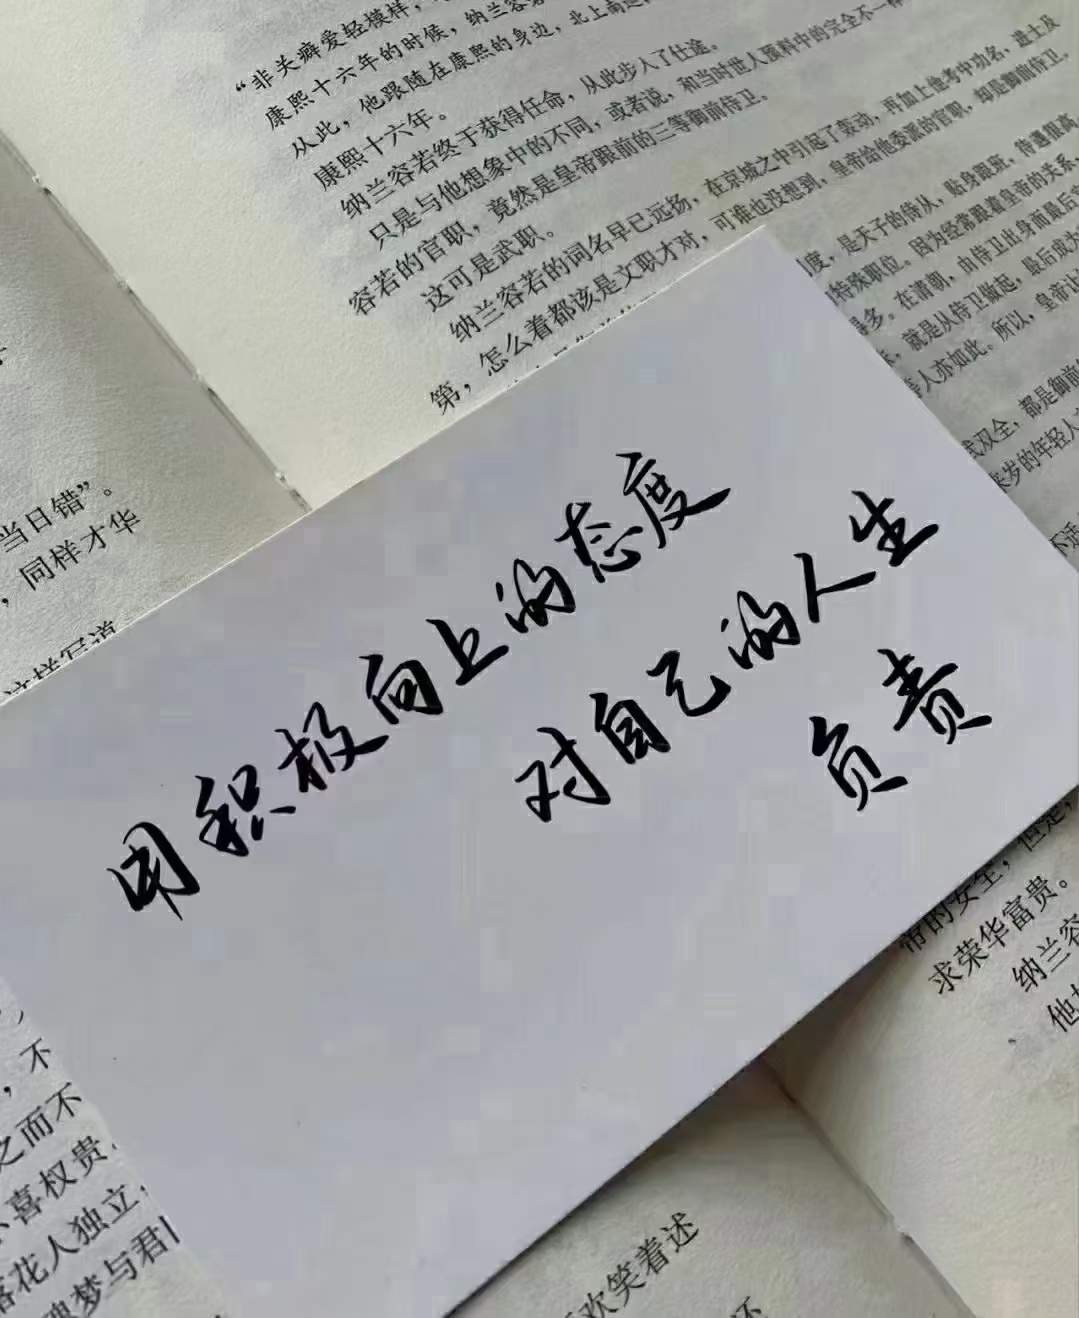 “非关癖爱轻模样，
康熙十六年的时候，纳兰容若
从此，他跟随在康熙的身边，北上南巡
康熙十六年。
纳兰容若终于获得任命，从此步入了仕途。
只是与他想象中的不同，或者说，和当时世人预料中的完全不一样
容若的官职，竟然是皇帝跟前的三等御前侍卫。
这可是武职。
纳兰容若的词名早已远扬，在京城之中引起了轰动，再加上他考中功名，进士及
第，怎么着都该是文职才对，可谁也没想到，皇帝给他委派的官职，却是御前侍卫。
度，是天子的侍从，贴身跟班，待遇很高，
特殊职位。因为经常跟着皇帝的关系，
得多。在清朝，由侍卫出身而最后官
就是从侍卫做起，最后成为
等人亦如此。所以，皇帝让
武双全，都是御前
来岁的年轻人
不适
当日错”。
，同样才华
这样写道
用积极向上的态度
对自己的人生
负责
帝的安全，但是，
求荣华富贵。
纳兰容
他
，不
之而不
喜权贵
落花人独立，
魂梦与君
欢笑着述
还